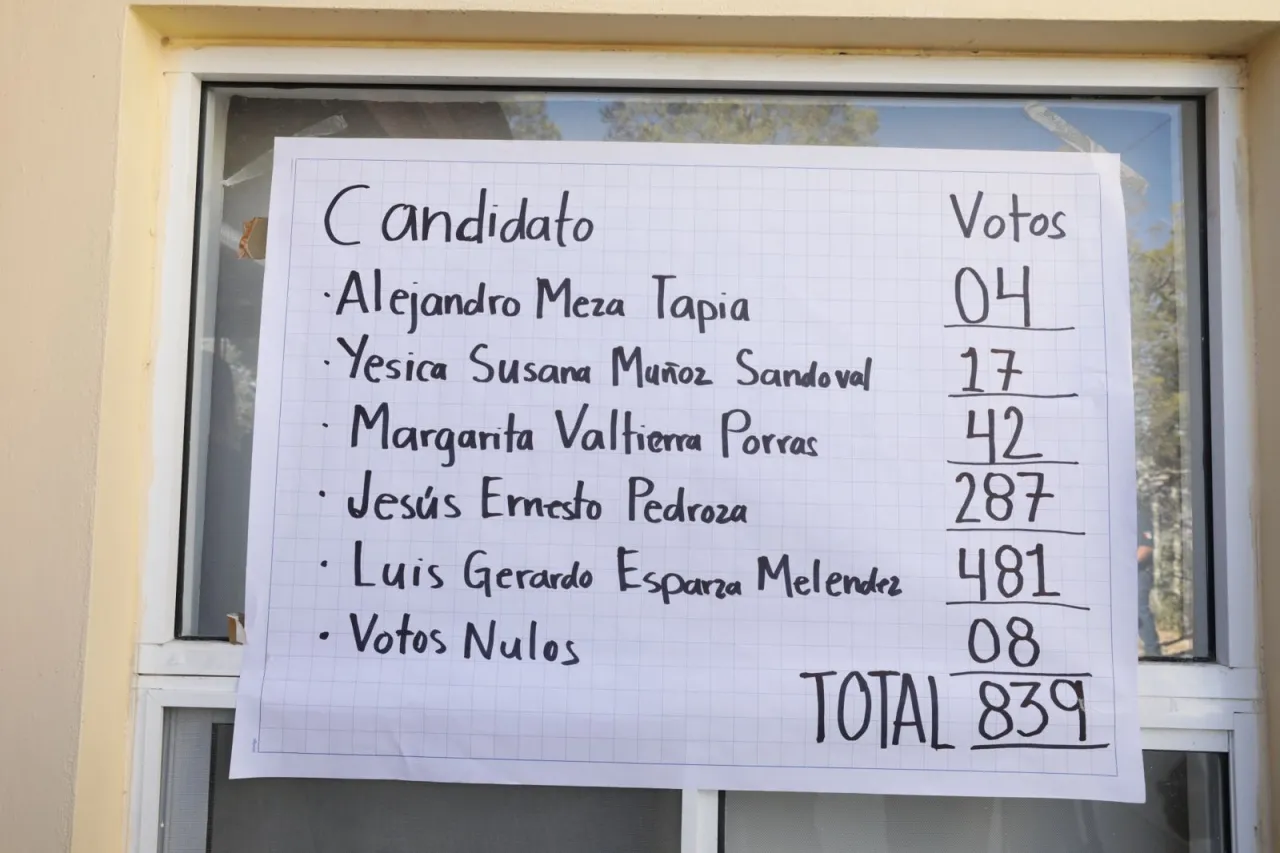 Candidato Votos
· Alejandro Meza Tapia 04
· Yesica Susana Muñoz Sandoval 17
· Margarita Valtierra Porras 42
· Jesús Ernesto Pedroza 287
· Luis Gerardo Esparza Melendez 481
· Votos Nulos 08
TOTAL 839